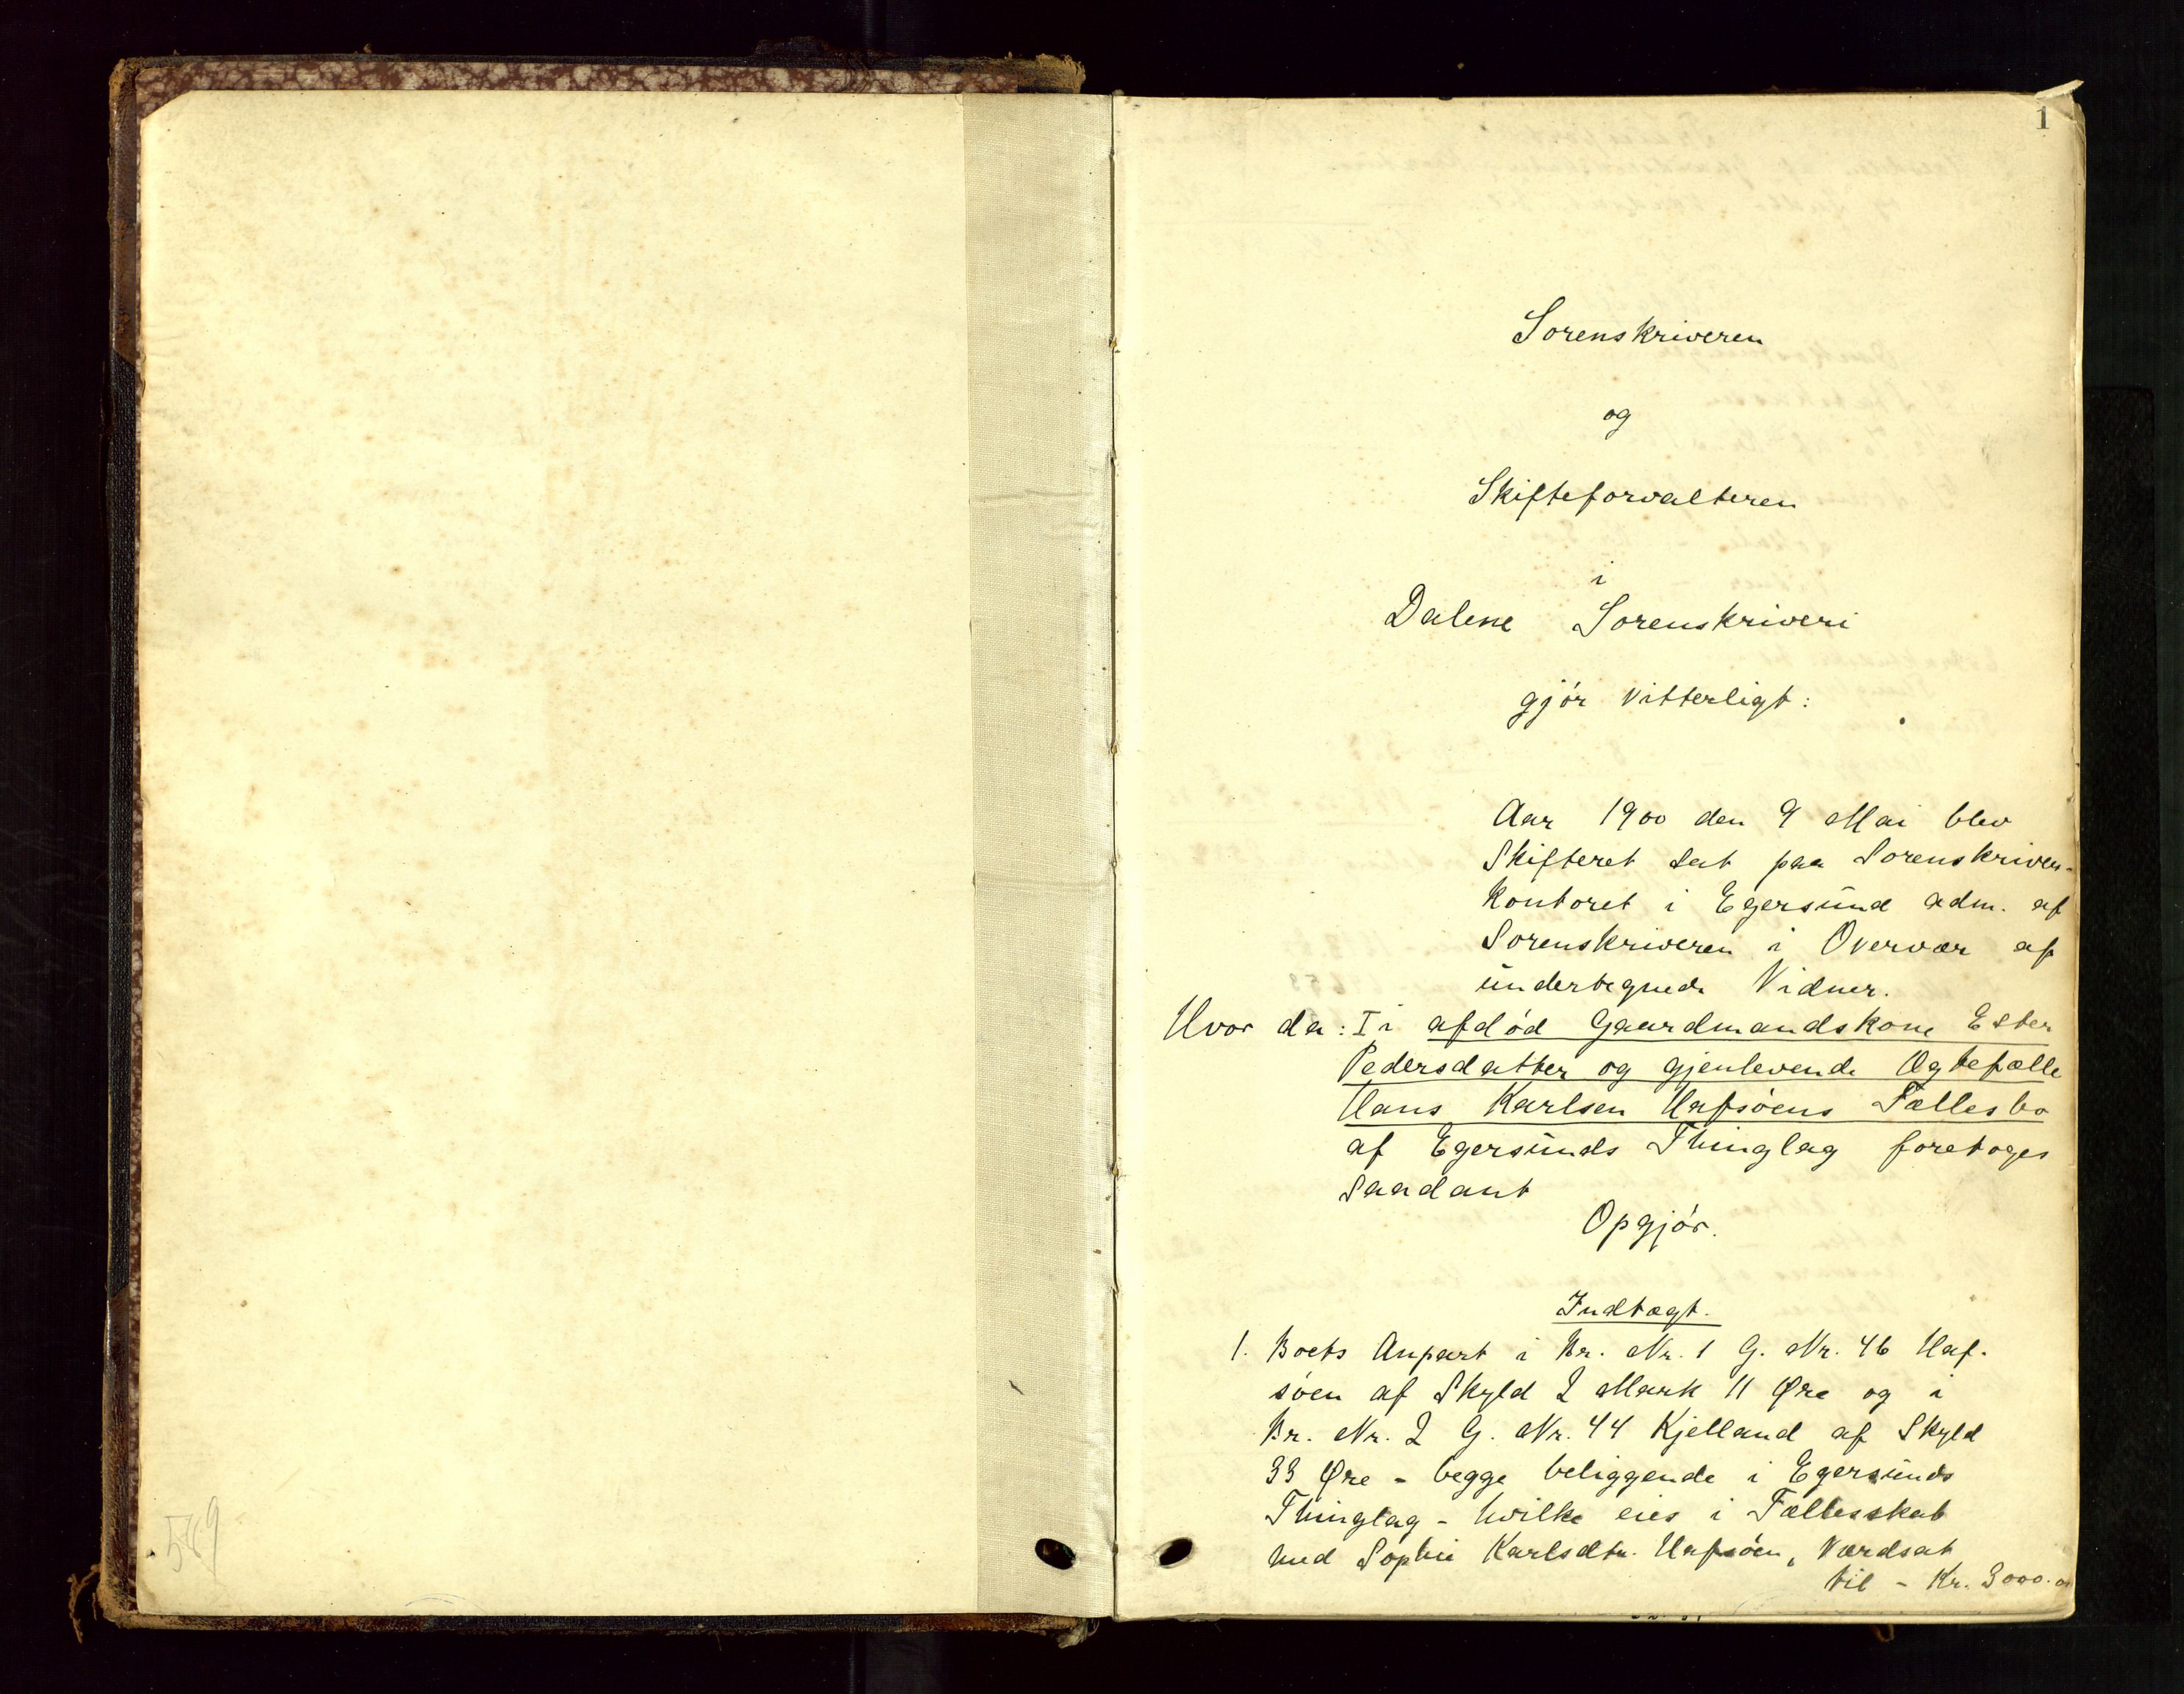 1
Sorenskriveren
og
Skifteforvalteren
i
Dalene Sorenskriveri
gjør vitterligt:
Aar 1900 den 9 Mai blev
Skifteret sat paa Sorenskriver-
kontoret i Egersund adm. af
Sorenskriveren i Overvær af
undertegnede Vidner.
Hvor da: I i afdød Gaardmandskone Ester
Pedersdatter og gjenlevende Ægtefælle
Hans Karlsen Hafsøens Fællesbo
af Egersunds Thinglag foretoges
saadant
Opgjør.
Indtægt.
1. Boets Anpart i Br. Nr. 1 G. Nr. 46 Haf-
søen af Skyld 2 Mark 11 Øre og i
Br. Nr. 2 G. Nr. 44 Kjelland af Skyld
33 Øre - begge beliggende i Egersunds
Thinglag - hvilke eies i Fællesskab
med Sophie Karlsdtr. Hafsøen, værdsat
til - Kr. 3000.00
569